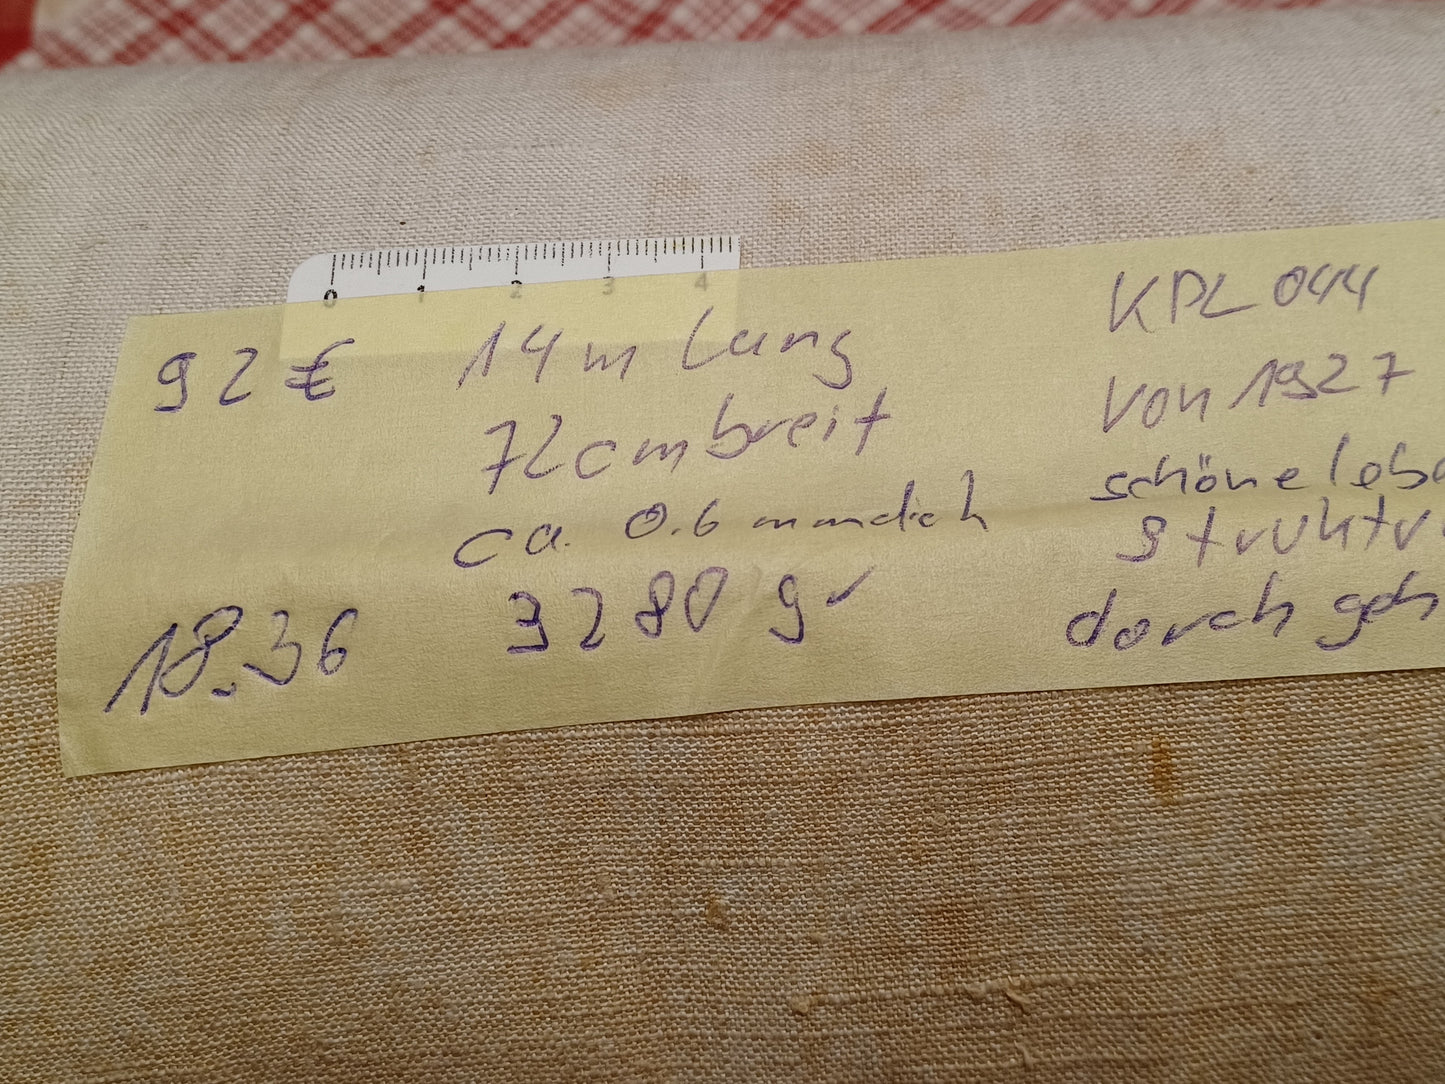 0 1 2 3 4
92 €
14 m lang
72 cm breit
ca. 0.6 mm dick
3280 gr
18.36
KPL 044
von 1927
schöne leba
struktu
durch geh